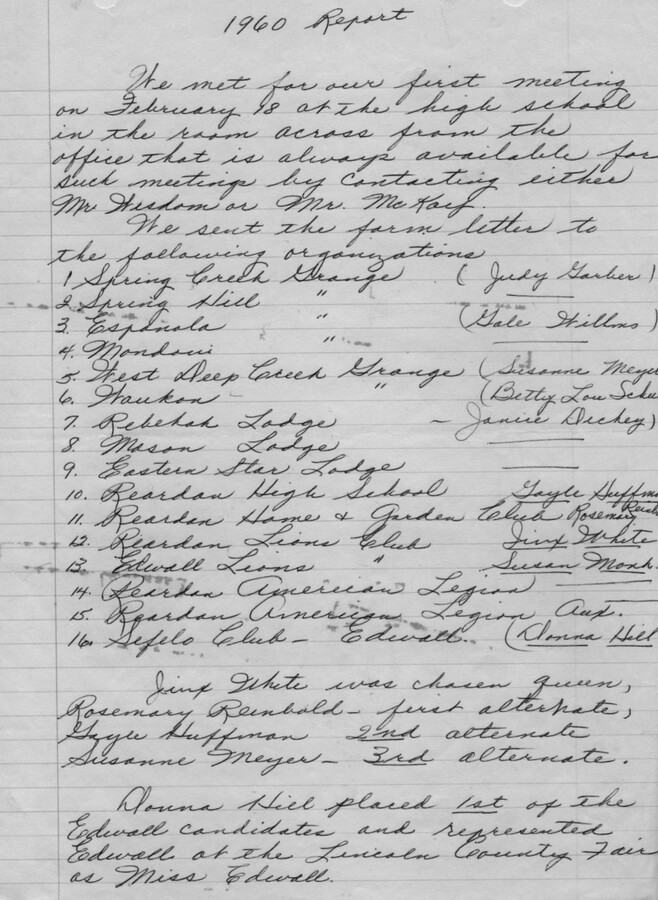 1960 Report
We met for our first meeting
on February 18 at the high school
in the room across from the
office that is always available for
such meetings by contacting either
Mr Wisdom or Mr. McKay.
We sent the form letter to
the following organizations
1 Spring Creek Grange (Judy Garber)
2. Spring Hill " —
3. Espanola " (Gale Willms)
4. Mondovi " —
5. West Deep Creek Grange (Susanne Meyer
6. Waukon - " (Betty Lou
7. Rebekah Lodge - Janice Dickey)
8. Mason Lodge —
9. Eastern Star Lodge —
10. Reardan High School Gayle Huffman
11. Reardan Home & Garden Club Rosemary
12. Reardan Lions Club Jinx White
13 Edwall Lions " Susan Monk.
14. Reardan American Legion —
15. Reardan American Legion Aux. —
16. Club - Edwall. (Donna Hill
Jinx White was chosen queen,
Rosemary Reinbold - first alternate,
Gayle Huffman 2nd alternate
Susanne Meyer - 3rd alternate.
Donna Hill placed 1st of the
Edwall candidates and represented
Edwall at the Lincoln County Fair
as Miss Edwall.